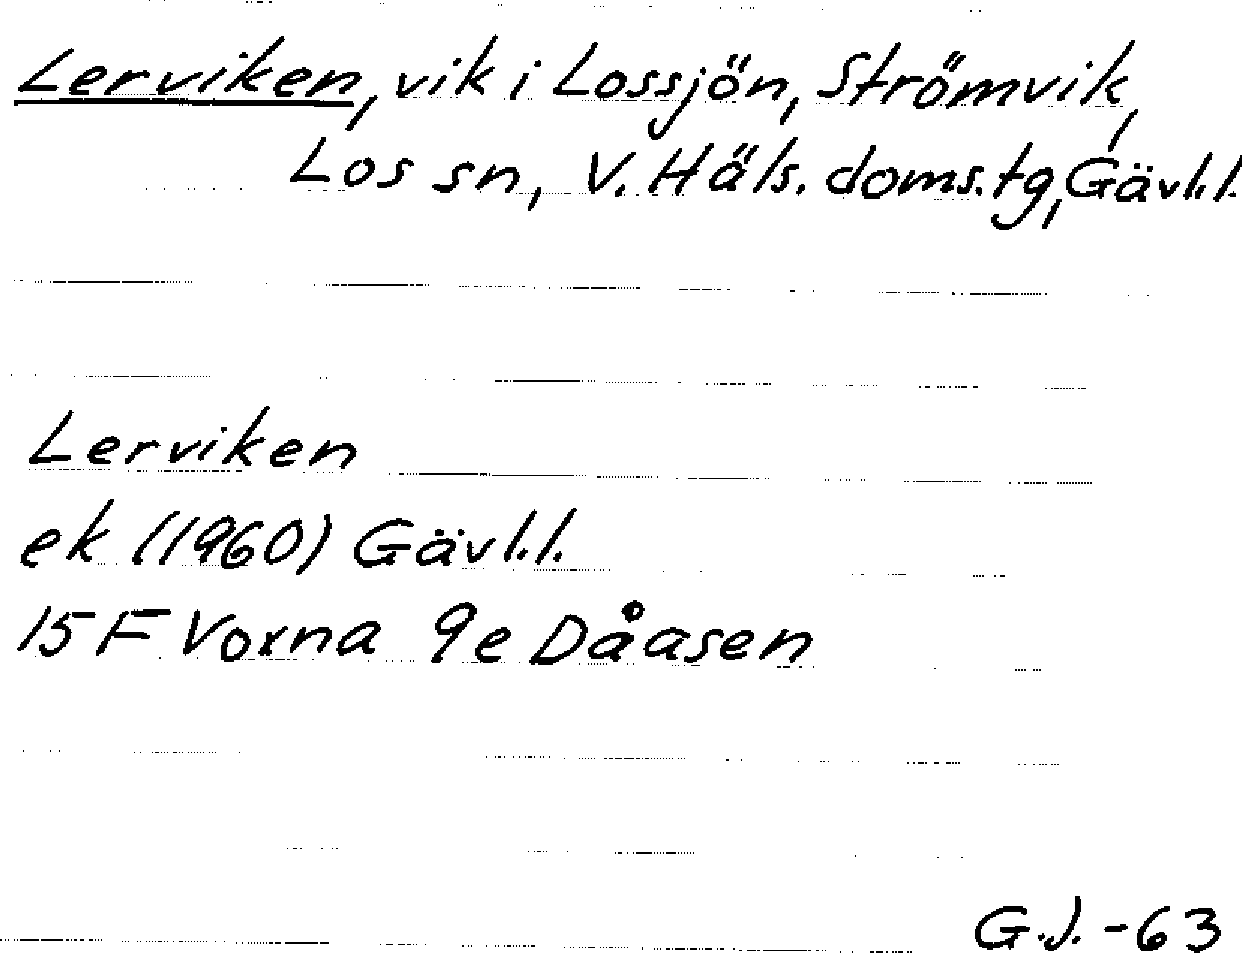 Lerviken, vik i Lossjön, Strömvik,
Los sn, V. Häls. doms.tg, Gävl.l.
Lerviken
ek (1960) Gävl.l.
15 F Voxna 9e Dåasen
G.J. -63